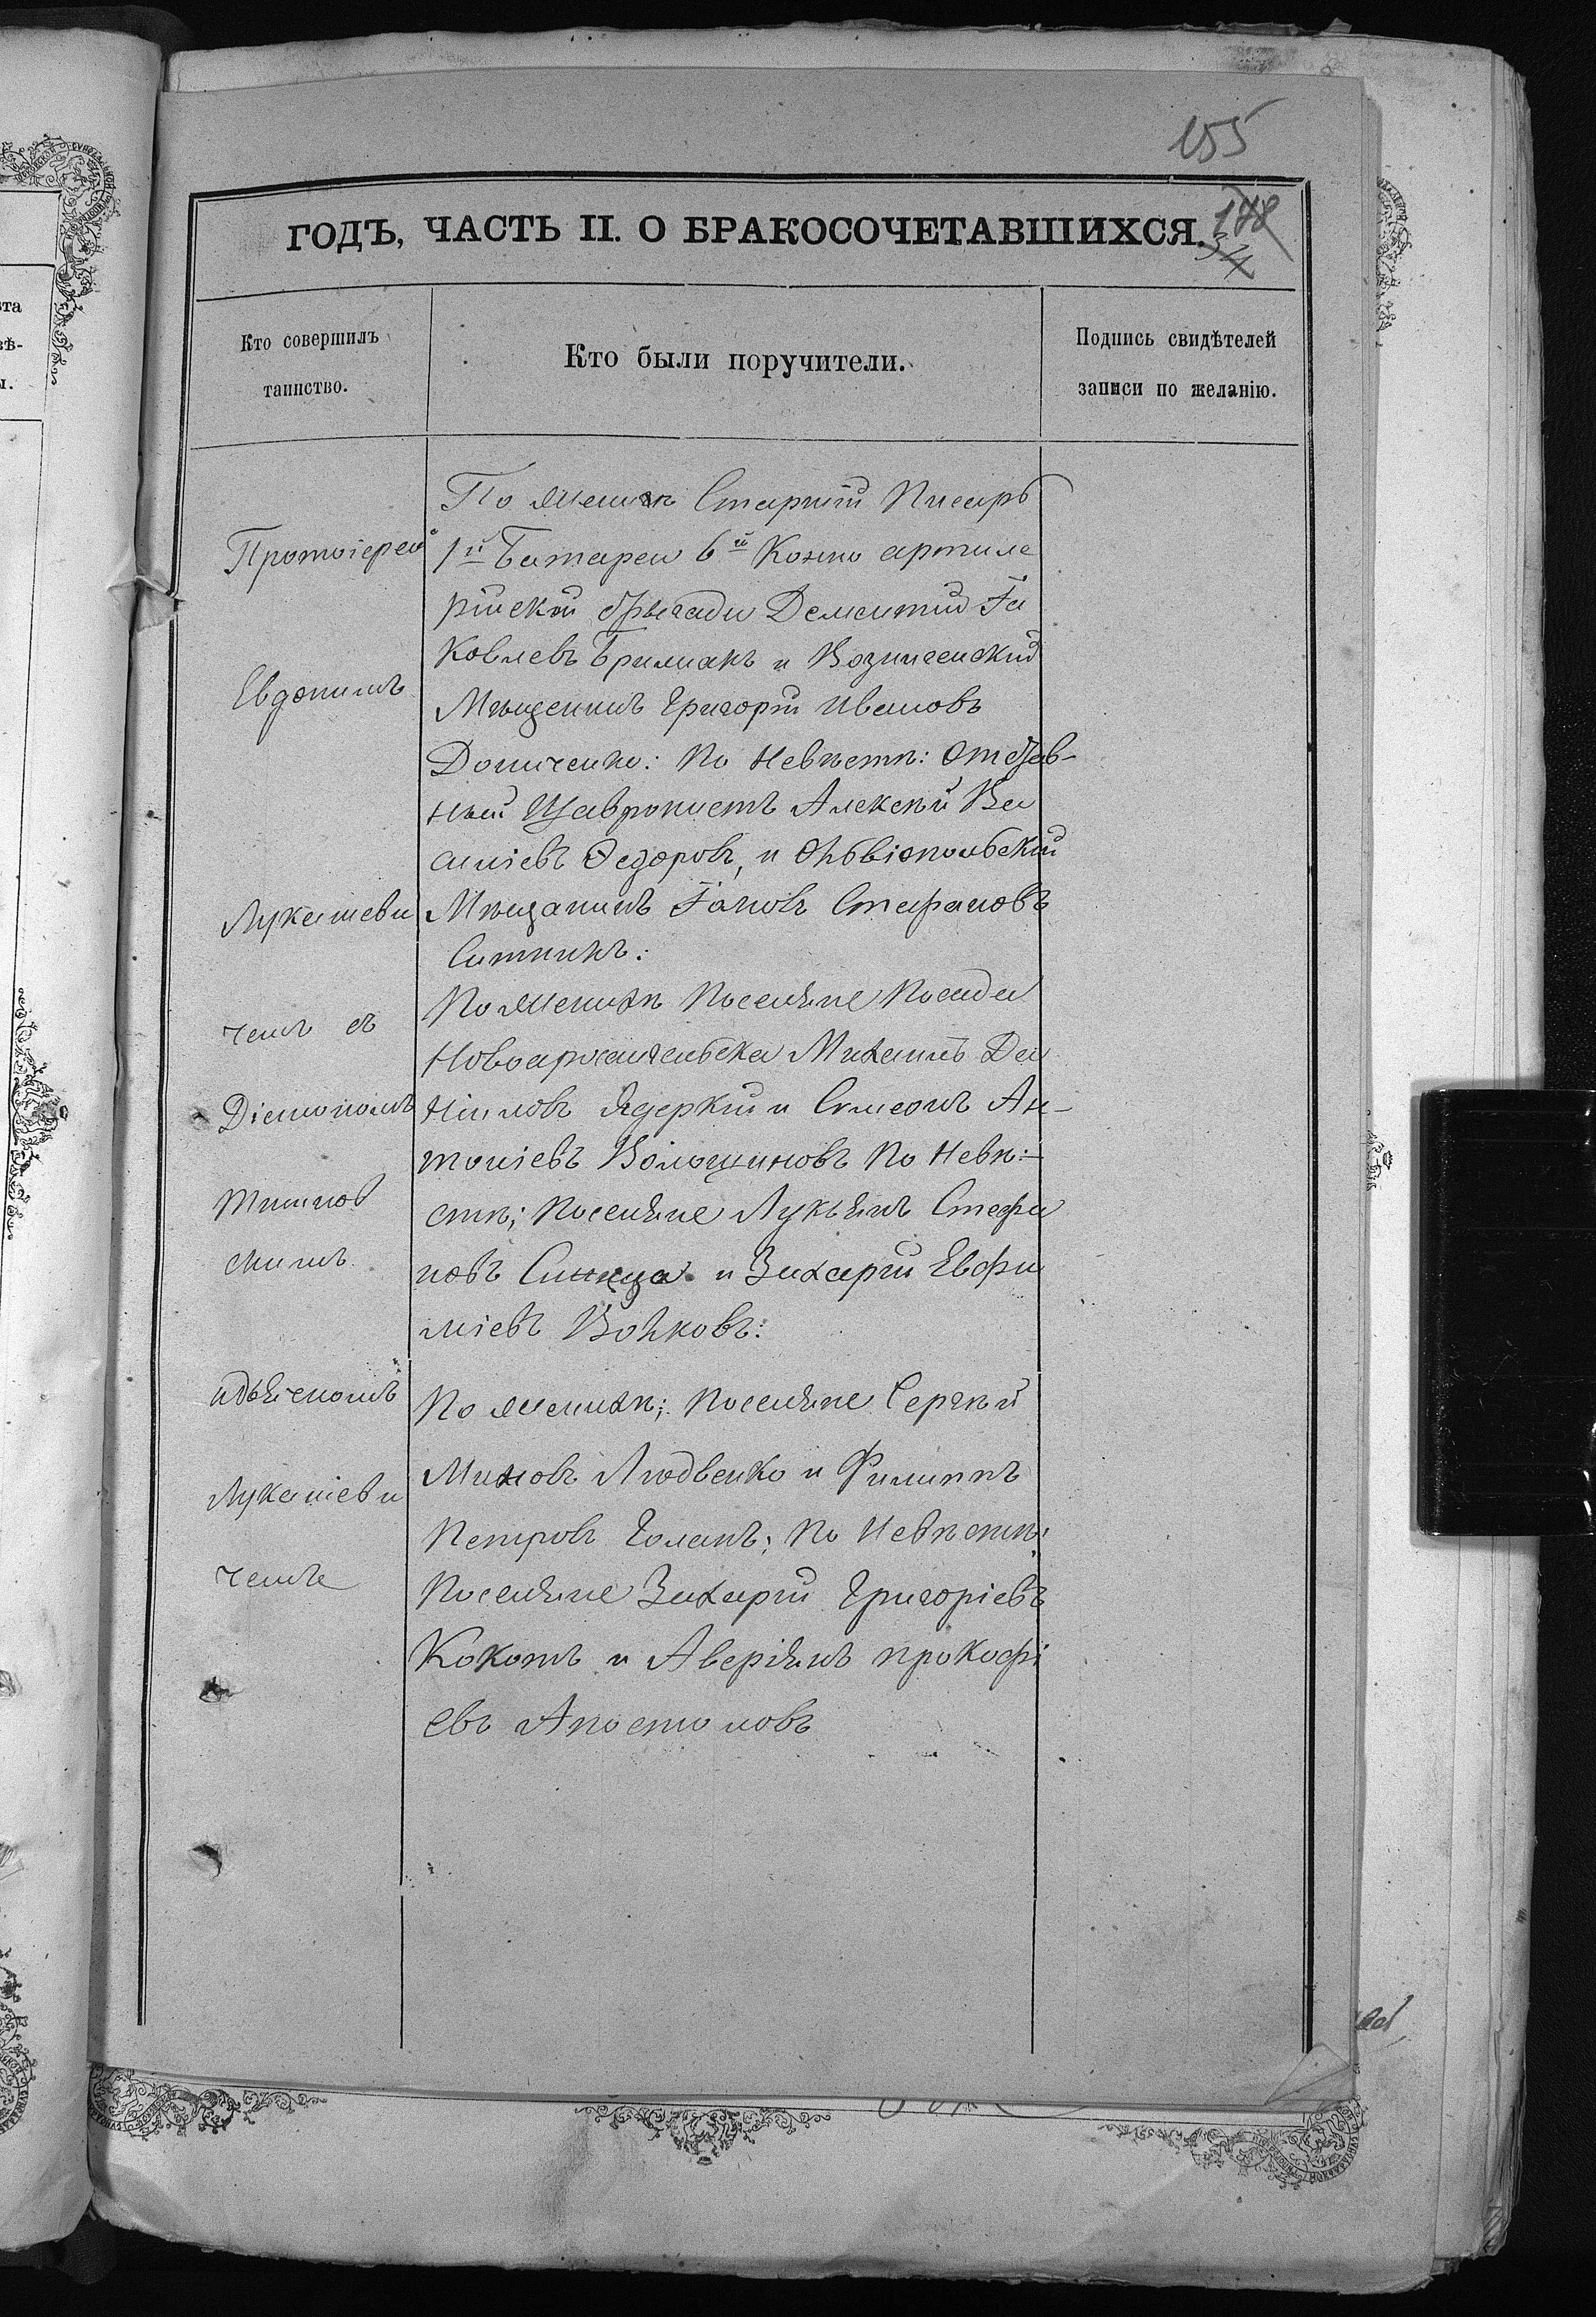 155
178
54
ГОДЪ, ЧАСТЬ II. О БРАКОСОЧЕТАВШИХСЯ.
Кто совершилъ
таинство.
Кто были поручители.
Подпись свидѣтелей
записи по желанію.
Протоіерей
Евдокимъ
Лукашеви
чемъ съ
Діакономъ
скимъ
идьячкомъ
Лукашеви
чемъ
По женихѣ Старшій Писарь
1й Батареи 6й Конно артиле
рійской бригади Дементій Іа
ковлевъ Брилиакъ и Вознисенскій
Мѣщенинъ Григорій Ивановъ
Дониченко: По Невѣстѣ: Отстав-
ный Щаброкистъ Алексѣй Ва
силіевъ Ѳедоровъ, и Ольвіопольскій
Мѣщанинъ Іаковъ Стефановъ
Ситникъ:
По женихѣ Поселяне Посада
Новоархангельска Михаилъ Да
ніиловъ Ядеркій и Симеонъ Ан-
тоніевъ Волощиновъ По Невѣ:-
стѣ; Поселяне Лукьянъ Стефа
новъ Синица и Захарій Евфи
міевъ Волковъ:
По женихѣ; Поселяне Сергѣй
Миховъ Людвенко и Филиппъ
Петровъ Голакъ; По Невѣстѣ:
Поселяне Захарій Григоріевъ
Кокотъ и Аверіянъ прокофі
евъ Апостоловъ